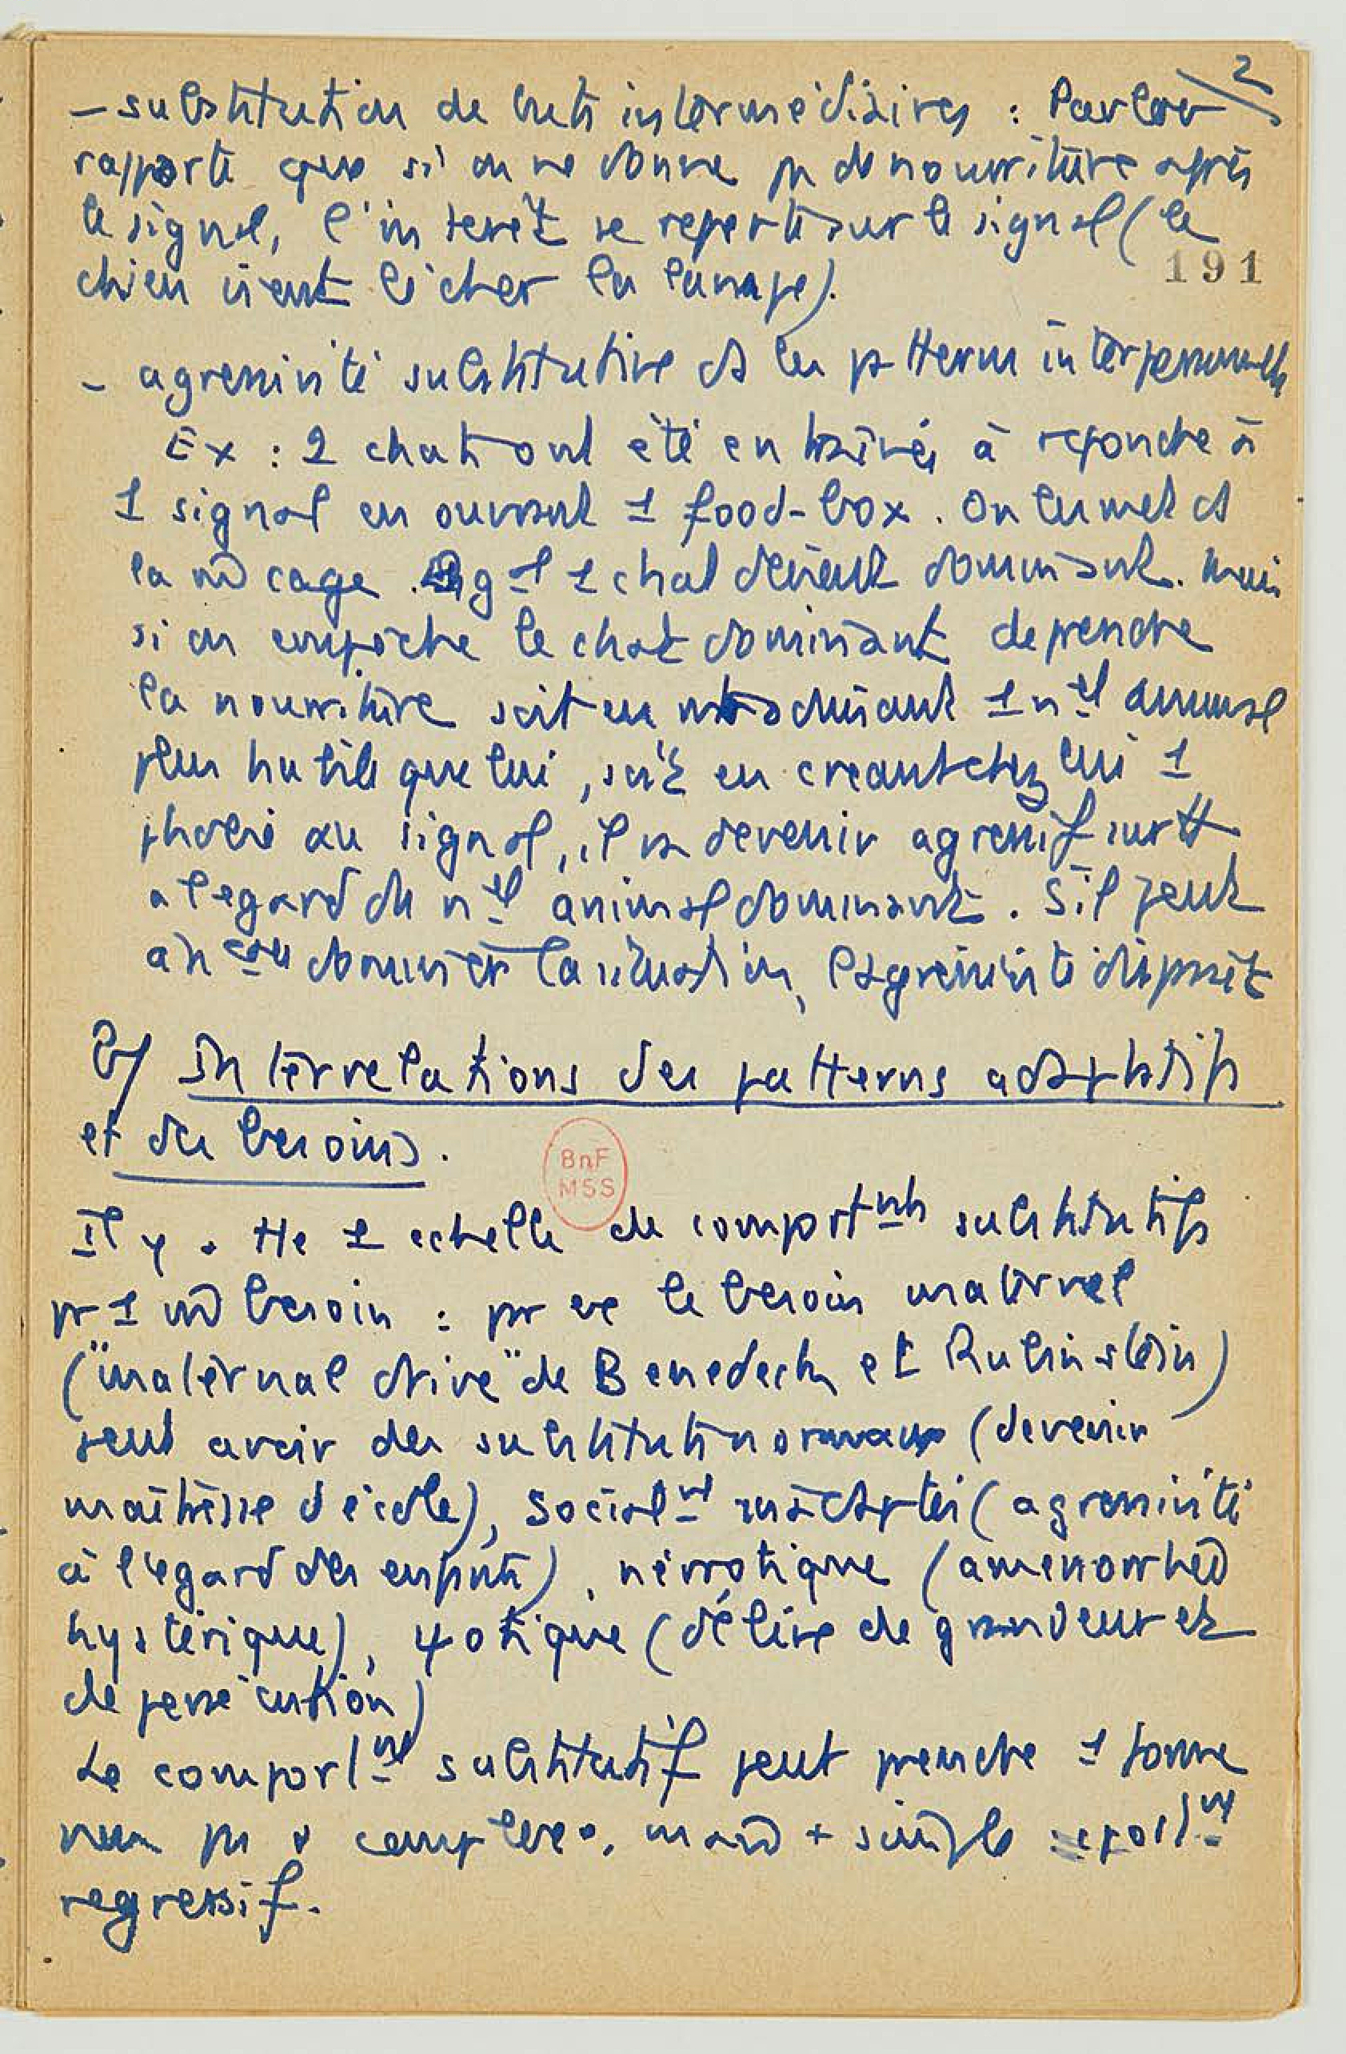 2
– substitution de buts intermédiaires : Pavlov
rapporte que si on ne donne pas de nourriture après
le signal, l'intérêt se reporte sur le signal (le
191
chien vient lécher la lampe).
– agressivité substitutive ds les patterns interpersonnels
Ex : 2 chats ont été entraînés à repondre à
1 signal en ouvrant 1 food-box. On les met ds
la m̂ cage. 1 chat devient dominant. Mais
si on empêche le chat dominant de prendre
la nourriture soit en introduisant 1 nvel animal
plus hostile que lui, soit en creant chez lui 1
phobie du signal, il va devenir agressif surtt
a l'egard du nvel animal dominant. S'il peut
à nveau dominer la situation, l'agressivité disparaît
b/ Interrelations des patterns adaptatifs
et des besoins.
BnF
MSS
Il y a tte 1 echelle de comportmts substitutifs
pr 1 m̂ besoin : pr ex le besoin maternel
("maternal drive" de Benedeck et Rubinstein)
peut avoir des substituts normaux (devenir
maîtresse d'école), socialmt inadaptés (agressivité
à l'égard des enfants), névrotique (amenorrhée
hystérique), ψotique (délire de grandeur et
de persécution)
Le comportmt substitutif peut prendre 1 forme
non pas + complexe, mais + simple :
regressif.